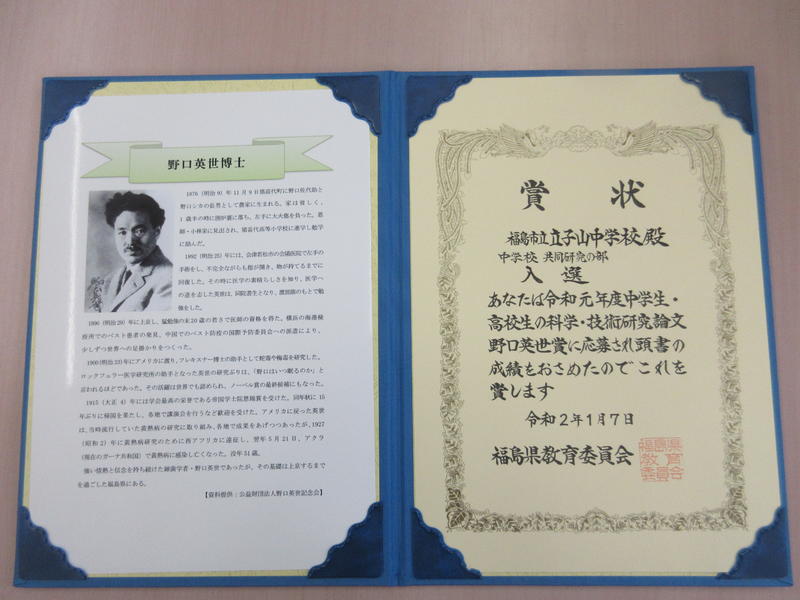 野口英世博士
1876(明治9)年11月9日猪苗代町に野口佐代助と
野口シカの長男として農家に生まれる。家は貧しく、
1歳半の時に囲炉裏に落ち、左手に大火傷を負った。恩
師・小林栄に見出され、猪苗代高等小学校に進学し勉学
に励んだ。
1892(明治25)年には、会津若松市の会陽医院で左手の
手術をし、不完全ながらも指が開き、物が持てるまでに
回復した。その時に医学の素晴らしさを知り、医学へ
の道を志した英世は、同院書生となり、渡部鼎のもとで勉
強をした。
1896(明治29)年に上京し、猛勉強の末20歳の若さで医師の資格を得た。横浜の海港検
疫所でのペスト患者の発見、中国でのペスト防疫の国際予防委員会への派遣により、
少しずつ世界への足掛かりをつくった。
1900(明治33)年にアメリカに渡り、フレキスナー博士の助手として蛇毒や梅毒を研究した。
ロックフェラー医学研究所の助手となった英世の研究ぶりは、「野口はいつ眠るのか」と
言われるほどであった。その活躍は世界でも認められ、ノーベル賞の最終候補にもなった。
1915(大正4)年には学会最高の栄誉である帝国学士院恩賜賞を受けた。同年秋に15
年ぶりに帰国を果たし、各地で講演会を行うなど歓迎を受けた。アメリカに戻った英世
は、当時流行していた黄熱病の研究に取り組み、各地で成果をあげつつあったが、1927
(昭和2)年に黄熱病研究のために西アフリカに遠征し、翌年5月21日、アクラ
(現在のガーナ共和国)で黄熱病に感染し亡くなった。没年51歳。
強い情熱と信念を持ち続けた細菌学者・野口英世であったが、その基礎は上京するまで
を過ごした福島県にある。
【資料提供:公益財団法人野口英世記念会】
賞状
福島市立立子山中学校殿
中学校 共同研究の部
入選
あなたは令和元年度中学生・
高校生の科学・技術研究論文
野口英世賞に応募され頭書の
成績をおさめたのでこれを
賞します
令和2年1月7日
福島県教育委員会
福島県
教育
委員会